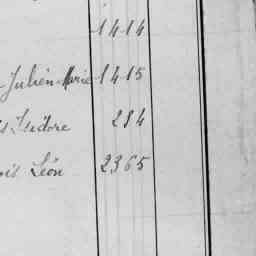 1414
Julien Marie 1415
Isidore 284
Léon 2365